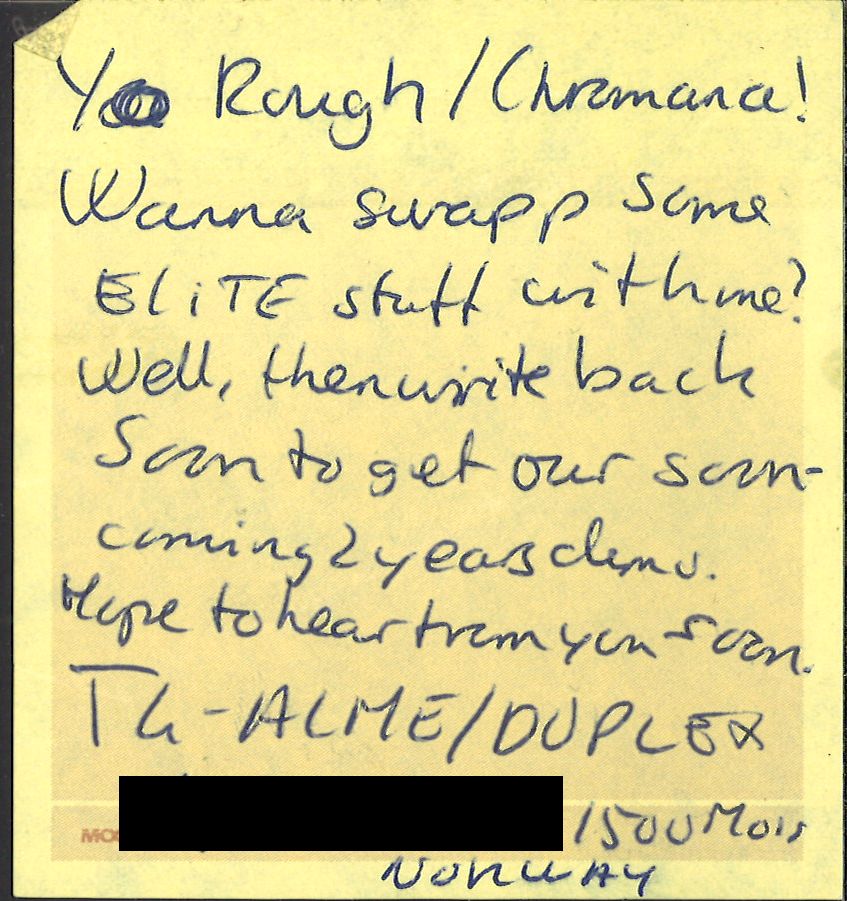 Yo Rough/Chromance!
Wanna swapp some
ELiTE stuff with me?
Well, then write back
Soon to get our soon-
coming 2 years demo.
Hope to hear from you soon.
TG-ALME/DUPLEX
1500 Moss
NORWAY